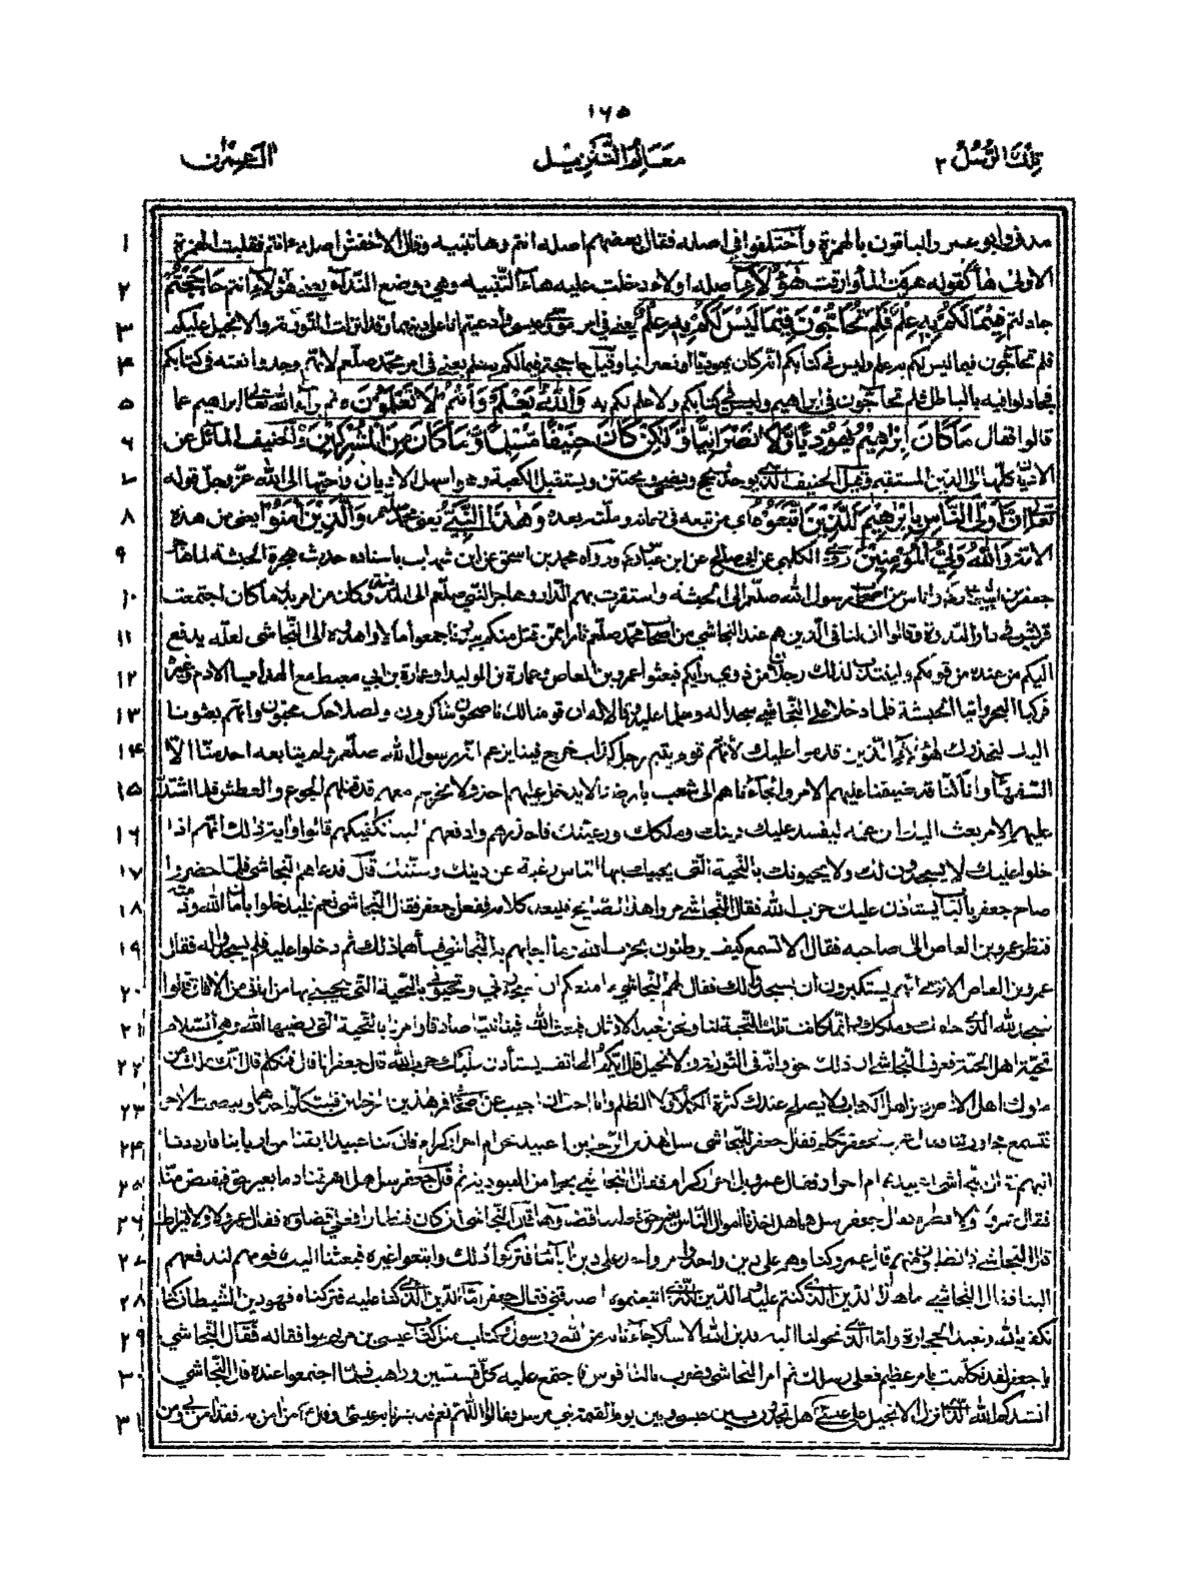 ١٦٥
تلك الرسل ٣
معالم التنزيل
آل عمران
١ مدني وابو عمرو والباقون بالهمزة واختلفوا في اصله فقال بعضهم اصله انتم وها تنبيه وقال الاخفش اصله ءانتم فقلبت الهمزة
٢ الاولى هاء كقوله هرقت الماء وارقت هٰؤُلَاءِ اصله اولاء دخلت عليه هاء التنبيه وهي موضع النداء يعني يا هؤلاء انتم حَاجَجْتُمْ
٣ جادلتم فِيْمَا لَكُمْ بِهِ عِلْمٌ فَلِمَ تُحَاجُّوْنَ فِيْمَا لَيْسَ لَكُمْ بِهِ عِلْمٌ يعني في امر موسى وعيسى وادعيتم انكم على دينهما وقد انزلت التورية والانجيل عليكم
٤ فلم تحاجون فيما ليس لكم به علم وليس في كتابكم انه كان يهوديا او نصرانيا وقيل حاججتم فيما لكم به علم يعني في امر محمد صلعم لانهم وجدوا نعته في كتابهم
٥ فجادلوا فيه بالباطل فلم تحاجون في ابراهيم وليس في كتابكم ولا علم لكم به وَاللّٰهُ يَعْلَمُ وَاَنْتُمْ لَا تَعْلَمُوْنَ ه ثم برأ الله تعالى ابراهيم عما
٦ قالوا فقال مَاكَانَ اِبْرٰهِيْمُ يَهُوْدِيًّا وَّلَا نَصْرَانِيًّا وَّلٰكِنْ كَانَ حَنِيْفًا مُّسْلِمًا وَمَا كَانَ مِنَ الْمُشْرِكِيْنَ والحنيف المائل عن
٧ الاديان كلها الى الدين المستقيم وقيل الحنيف الذي يوحد ويحج ويضحي ويختتن ويستقبل الكعبة وهو اسهل الاديان واحبها الى الله عز وجل قوله
٨ تعالى اِنَّ اَوْلَى النَّاسِ بِاِبْرٰهِيْمَ لَلَّذِيْنَ اتَّبَعُوْهُ اي من تبعه في زمانه وملته بعده وَهٰذَا النَّبِيُّ يعني محمد صلعم وَالَّذِيْنَ اٰمَنُوْا يعني من هذه
٩ الامة وَاللّٰهُ وَلِيُّ الْمُؤْمِنِيْنَ روى الكلبي عن ابي صالح عن ابن عباس ورواه محمد بن اسحق عن ابن شهاب باسناده حديث هجرة الحبشة لما هاجر
١٠ جعفر بن ابي طالب رضه واناس من اصحاب رسول الله صلعم الى الحبشة واستقرت بهم الدار وهاجر النبي صلعم الى المدينة وكان من امر بدر ما كان اجتمعت
١١ قريش في دار الندوة وقالوا ان لنا في الذين هم عند النجاشي من اصحاب محمد صلعم ثارا ممن قتل منكم ببدر فاجمعوا مالا واهدوه الى النجاشي لعله يدفع
١٢ اليكم من عنده من قومكم ولينتدب لذلك رجلان من ذوي رايكم فبعثوا عمرو بن العاص وعمارة بن الوليد او عمارة بن ابي معيط مع الهدايا الادم وغيره
١٣ فركبا البحر واتيا الحبشة فلما دخلا على النجاشي سجدا له وسلما عليه وقالا له ان قومنا لك ناصحون شاكرون ولصلاحك محبون وانهم بعثونا
١٤ اليك ليحذروك هؤلاء الذين قدموا عليك لانهم قوم رجل كذاب خرج فينا يزعم انه رسول الله صلعم ولم يتابعه احد منا الا
١٥ السفهاء وانا كنا قد ضيقنا عليهم الامر والجأناهم الى شعب بارضنا لا يدخل عليهم احد ولا يخرج منهم قد قتلهم الجوع والعطش فلما اشتد
١٦ عليهم الامر بعث اليك ابن عمه ليفسد عليك دينك وملكك ورعيتك فاحذرهم وادفعهم الينا لنكفيكهم قالوا واية ذلك انهم اذا
١٧ دخلوا عليك لا يسجدون لك ولا يحيونك بالتحية التي يحييك بها الناس رغبة عن دينك وسنتك قال فدعاهم النجاشي فلما حضروا
١٨ صاح جعفر بالباب يستاذن عليك حزب الله فقال النجاشي مروا هذا الصايح فليعد كلامه ففعل جعفر فقال النجاشي نعم فليدخلوا بامان الله وذمته
١٩ فنظر عمرو بن العاص الى صاحبه فقال الا تسمع كيف يرطنون بحزب الله وما اجابهم به النجاشي فساءهما ذلك ثم دخلوا عليه فلم يسجدوا له فقال
٢٠ عمرو بن العاص الا ترى انهم يستكبرون ان يسجدوا لك فقال لهم النجاشي ما منعكم ان تسجدوا لي وتحيوني بالتحية التي يحييني بها من اتاني من الافاق قالوا
٢١ نسجد لله الذي خلقك وملكك وانما كانت تلك التحية لنا ونحن نعبد الاوثان فبعث الله فينا نبيا صادقا وامرنا بالتحية التي رضيها الله وهي السلام
٢٢ تحية اهل الجنة فعرف النجاشي ان ذلك حق وانه في التورية والانجيل قال ايكم الهاتف يستأذن عليك حزب الله قال جعفر انا قال فتكلم قال انك ملك من
٢٣ ملوك اهل الارض من اهل الكتاب ولا يصلح عندك كثرة الكلام ولا الظلم وانا احب ان اجيب عن اصحابي فمر هذين الرجلين فليتكلم احدهما ولينصت الاخر
٢٤ فتسمع محاورتنا فقال عمرو لجعفر تكلم فقال جعفر للنجاشي سل هذين الرجلين اعبيد نحن ام احرار كرام فان كنا عبيدا ابقنا من اربابنا فارددنا
٢٥ اليهم فقال النجاشي اعبيد هم ام احرار فقال عمرو بل احرار كرام فقال النجاشي نجوا من العبودية ثم قال جعفر سل هل اهرقنا دما بغير حق فيقتص منا
٢٦ فقال عمرو لا ولا قطرة فقال جعفر سلهما هل اخذنا اموال الناس بغير حق فعلينا قضاؤها قال النجاشي ان كان قنطارا فعلي قضاؤه فقال عمرو لا ولا قيراط
٢٧ قال النجاشي فما تطلبون منهم قال عمرو كنا وهم على دين واحد وامر واحد على دين ابائنا فتركوا ذلك وابتغوا غيره فبعثنا اليك قومهم لتدفعهم
٢٨ الينا فقال النجاشي ما هذا الدين الذي كنتم عليه والدين الذي اتبعتموه اصدقني فقال جعفر اما الدين الذي كنا عليه فتركناه فهو دين الشيطان كنا
٢٩ نكفر بالله ونعبد الحجارة واما الذي تحولنا اليه فدين الله الاسلام جاءنا به من الله رسول وكتاب مثل كتاب عيسى بن مريم موافقا له فقال النجاشي
٣٠ يا جعفر لقد تكلمت بامر عظيم فعلى رسلك ثم امر النجاشي فضرب بالناقوس فاجتمع عليه كل قسيس وراهب فلما اجتمعوا عنده قال النجاشي
٣١ انشدكم الله الذي انزل الانجيل على عيسى هل تجدون بين عيسى وبين يوم القيمة نبي مرسل فقالوا اللهم نعم قد بشرنا به عيسى وقال من امن به فقد امن بي ومن